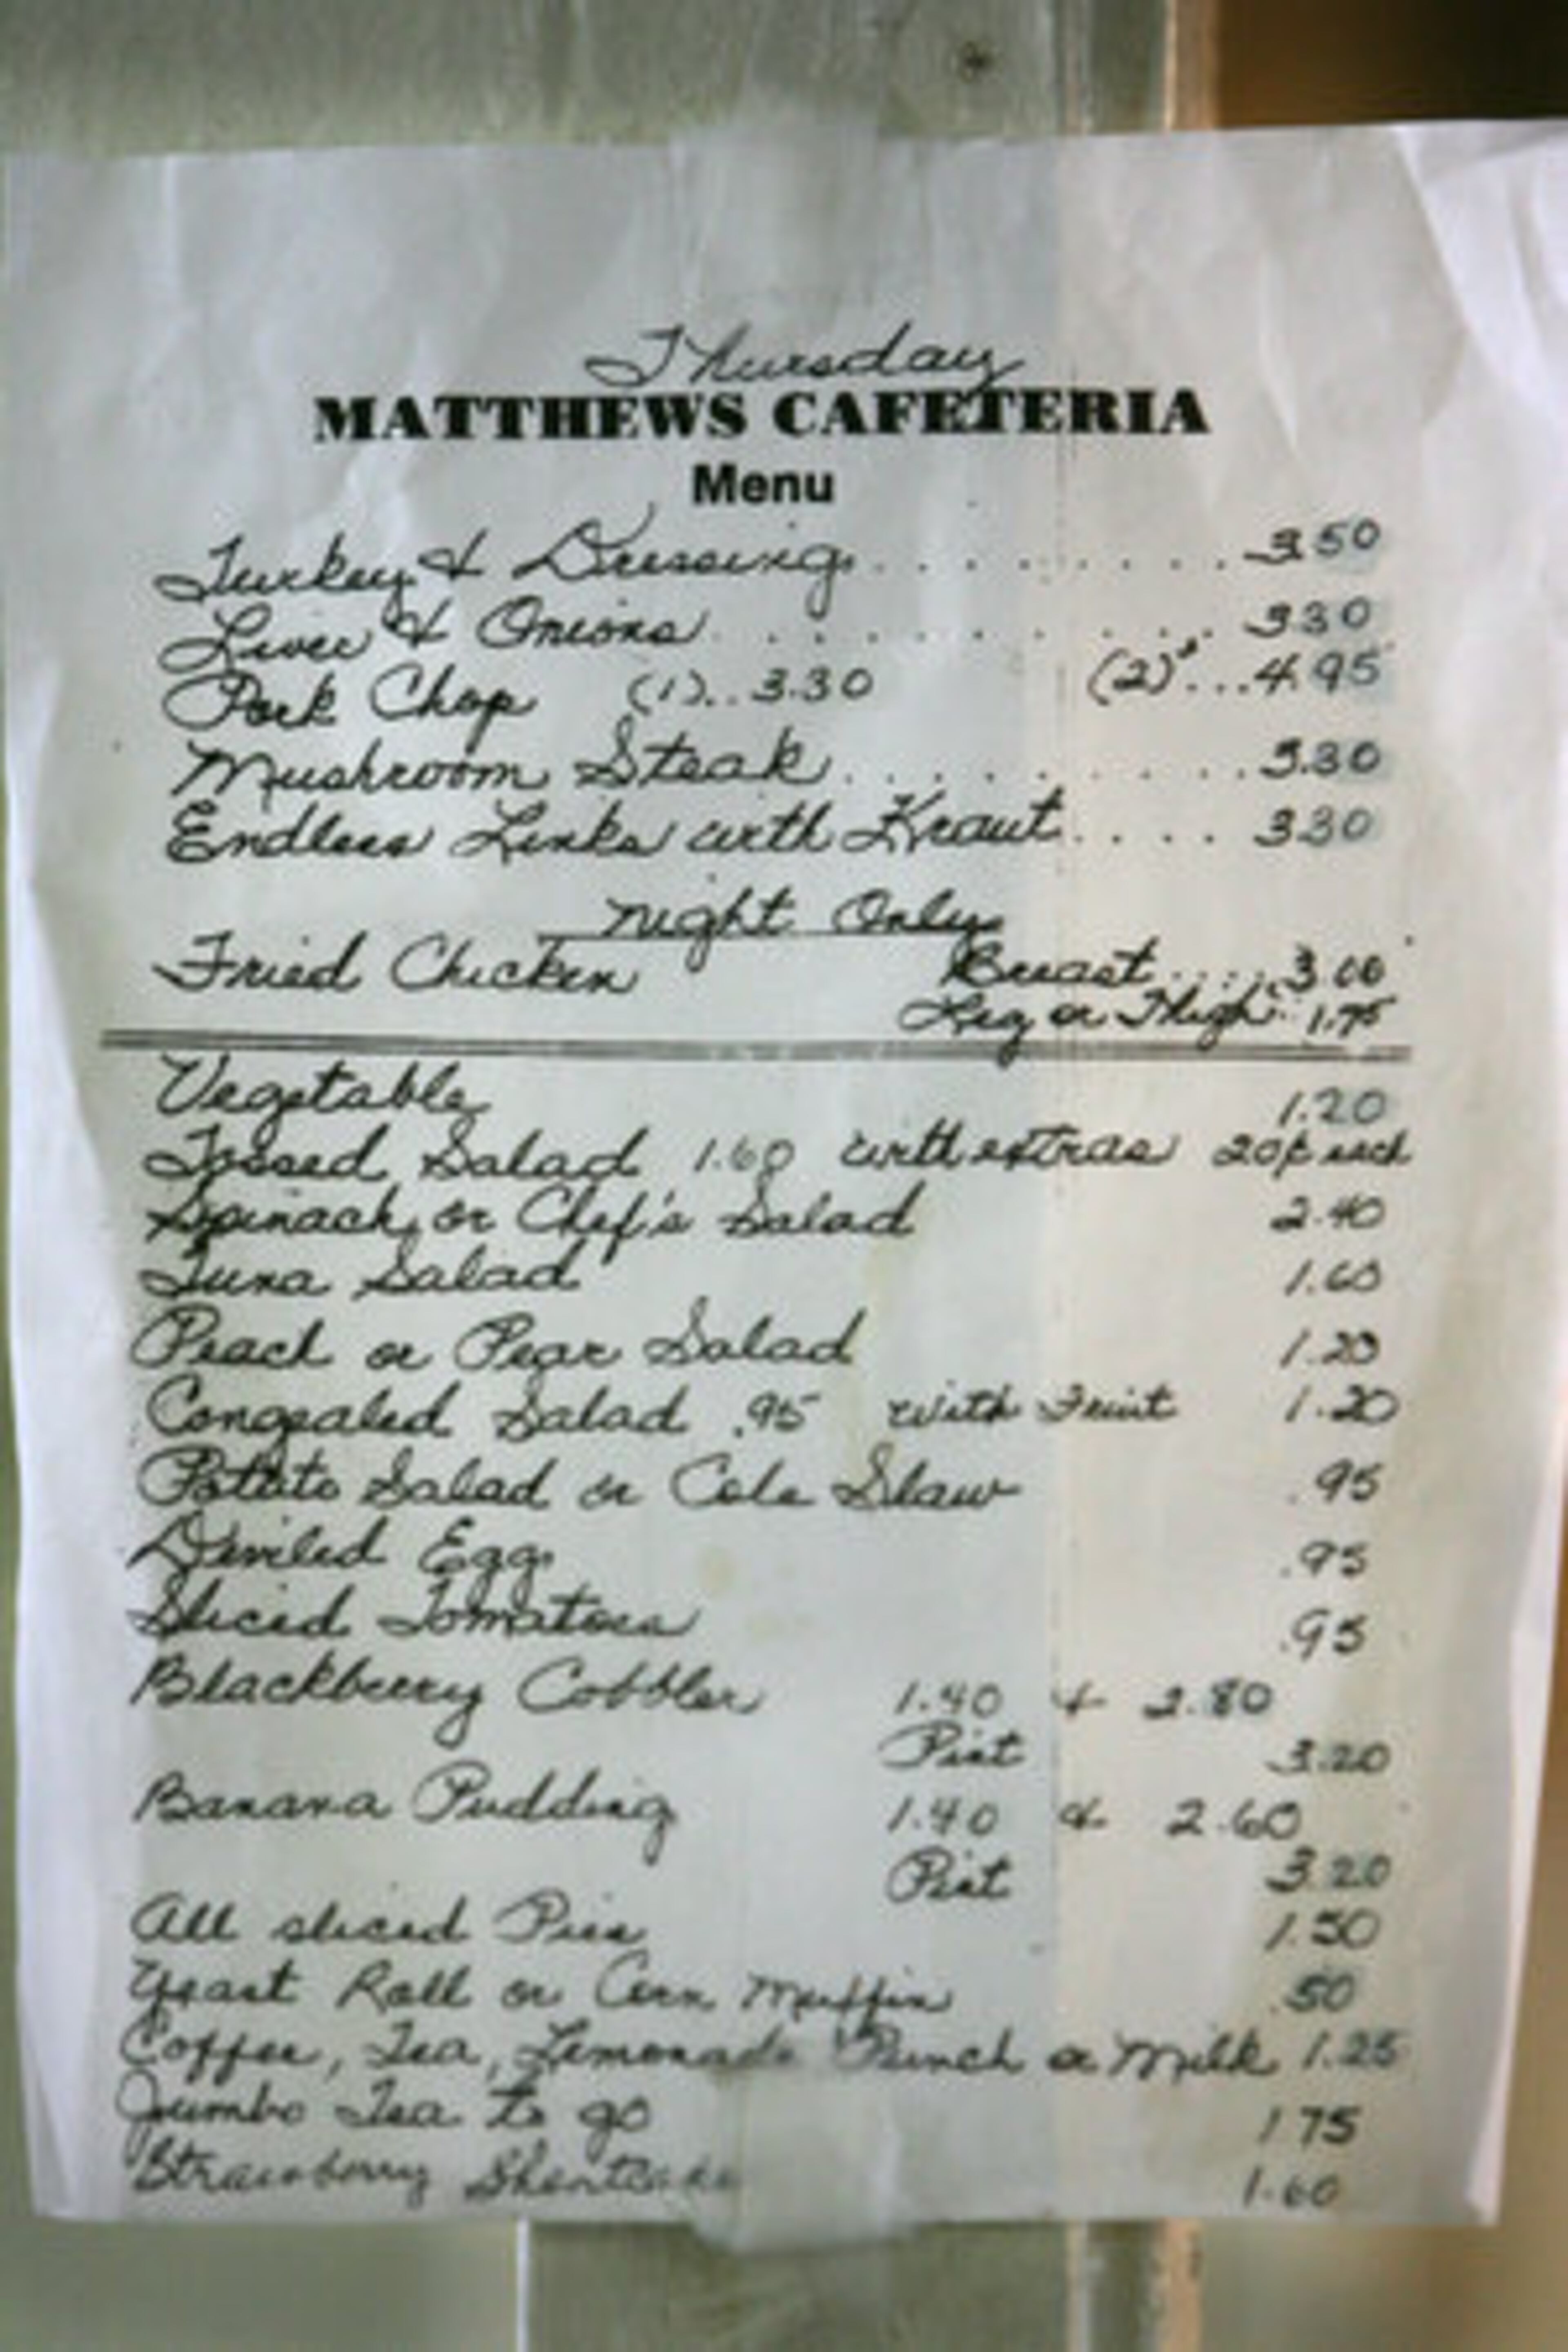 Thursday
MATTHEWS CAFETERIA
Menu
Turkey & Dressing.......... 3.50
Liver & Onions.......... 3.30
Pork Chop (1)..3.30 (2)...4.95
Mushroom Steak.......... 3.30
Endless Links with Kraut.... 3.30
Night Only
Fried Chicken Breast..... 3.00
Leg or Thigh.. 1.75
Vegetable 1.20
Tossed Salad 1.60 with extras 20¢ each
Spinach or Chef's Salad 2.40
Tuna Salad 1.60
Peach or Pear Salad 1.20
Congealed Salad .95 with Fruit 1.20
Potato Salad or Cole Slaw .95
Deviled Egg .95
Sliced Tomatoes .95
Blackberry Cobbler 1.40 & 2.80
Pint 3.20
Banana Pudding 1.40 & 2.60
Pint 3.20
All sliced Pies 1.50
Yeast Roll or Corn Muffin .50
Coffee, Tea, Lemonade Punch or Milk 1.25
Jumbo Tea to go 1.75
Strawberry Shortcake 1.60